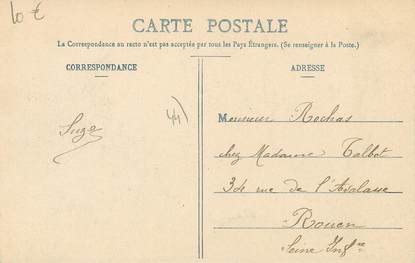 10 €
CARTE POSTALE
La Correspondance au recto n'est pas acceptée par tous les Pays Étrangers. (Se renseigner à la Poste.)
CORRESPONDANCE
ADRESSE
44)
Suze
Monsieur Rochas
chez Madame Talbot
34 rue de l'Avalasse
Rouen
Seine Infre